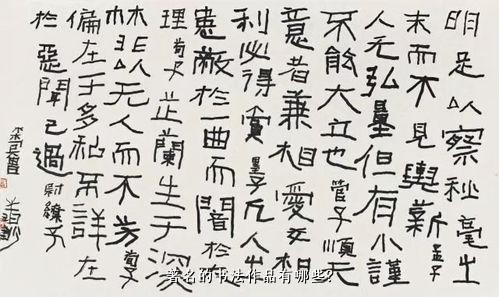 明足以察秋毫之
末而不見輿薪 孟子
人无弘量但有小謹
不能大立也 管子 順天
意者兼相愛交相
利必得賞 墨子 凡人之
患蔽於一曲而闇於大
理 荀子 芷蘭生于深
林非以无人而不芳 荀子
偏在于多私不詳在
於惡聞己過 尉繚子
著名的书法作品有哪些?